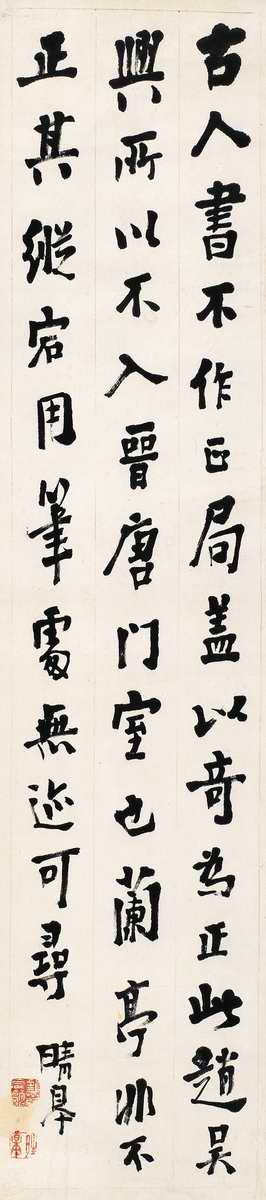 古人書不作正局盖以奇為正此趙吴
興所以不入晉唐門室也蘭亭非不
正其縱宕用筆處無迹可尋
晴皋